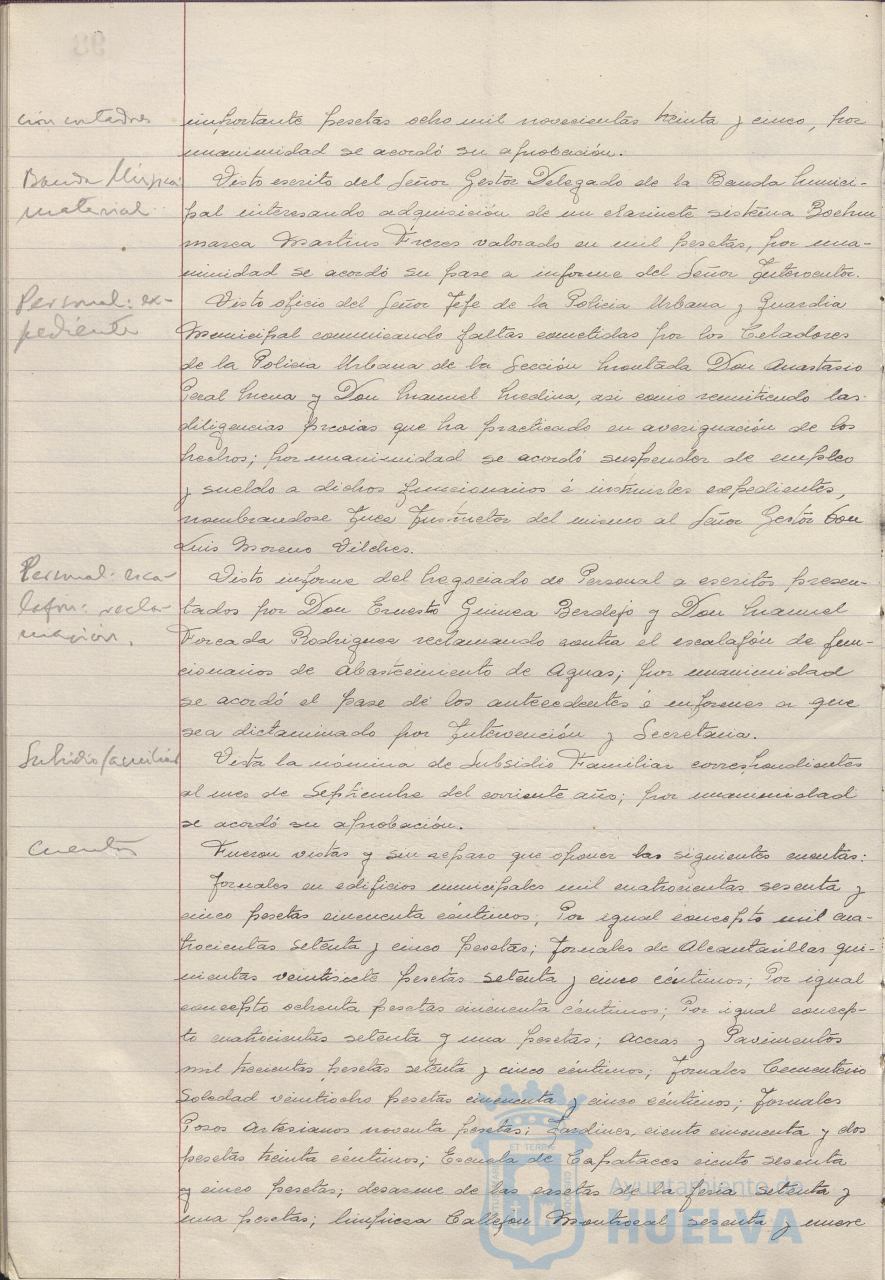 ción contadores
importante pesetas ocho mil novecientas treinta y cinco, por
unanimidad se acordó su aprobación.
Banda Música:
material.
Visto escrito del Señor Gestor Delegado de la Banda Munici-
pal interesando adquisición de un clarinete sistema Boehm
marca Martins Freres valorado en mil pesetas, por una-
nimidad se acordó su pase a informe del Señor Interventor.
Personal: ex-
pediente
Visto oficio del Señor Jefe de la Policia Urbana y Guardia
Municipal comunicando faltas cometidas por los Celadores
de la Policia Urbana de la Sección Montada Don Anastasio
Peral Mena y Don Manuel Medina, asi como remitiendo las
diligencias previas que ha practicado en averiguación de los
hechos; por unanimidad se acordó suspender de empleo
y sueldo a dichos funcionarios é instruirles expedientes,
nombrandose Juez Instructor del mismo al Señor Gestor Don
Luis Moreno Vilches.
Personal: esca-
lafón: recla-
mación.
Visto informe del Negociado de Personal a escritos presen-
tados por Don Ernesto Guinea Berdejo y Don Manuel
Forcada Rodriguez reclamando contra el escalafón de fun-
cionarios de Abastecimiento de Aguas; por unanimidad
se acordó el pase de los antecedentes é informes a que
sea dictaminado por Intervención y Secretaria.
Subsidio familiar
Vista la nómina de Subsidio Familiar correspondientes
al mes de Septiembre del corriente año; por unanimidad
se acordó su aprobación.
Cuentas
Fueron vistas y sin reparo que oponer las siguientes cuentas:
Jornales en edificios municipales mil cuatrocientas sesenta y
cinco pesetas cincuenta céntimos; Por igual concepto mil cua-
trocientas setenta y cinco pesetas; Jornales de Alcantarillas qui-
nientas veintisiete pesetas setenta y cinco céntimos; Por igual
concepto ochenta pesetas cincuenta céntimos; Por igual concep-
to cuatrocientas setenta y una pesetas; Aceras y Pavimentos
mil trecientas pesetas setenta y cinco céntimos; Jornales Cementerio
Soledad veintiocho pesetas cincuenta y cinco céntimos; Jornales
Posos Artesianos noventa pesetas; Jardines, ciento cincuenta y dos
pesetas treinta céntimos; Escuela de Capataces ciento sesenta
y cinco pesetas; desarme de las casetas de la feria setenta y
una pesetas; limpieza Callejon Montrocal sesenta y nueve
ET TERRAE
Ayuntamiento de
HUELVA